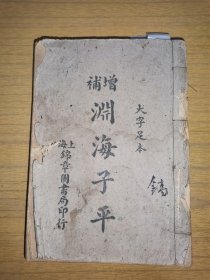 大字足本
增補
淵海子平
上海錦章圖書局印行
鎬